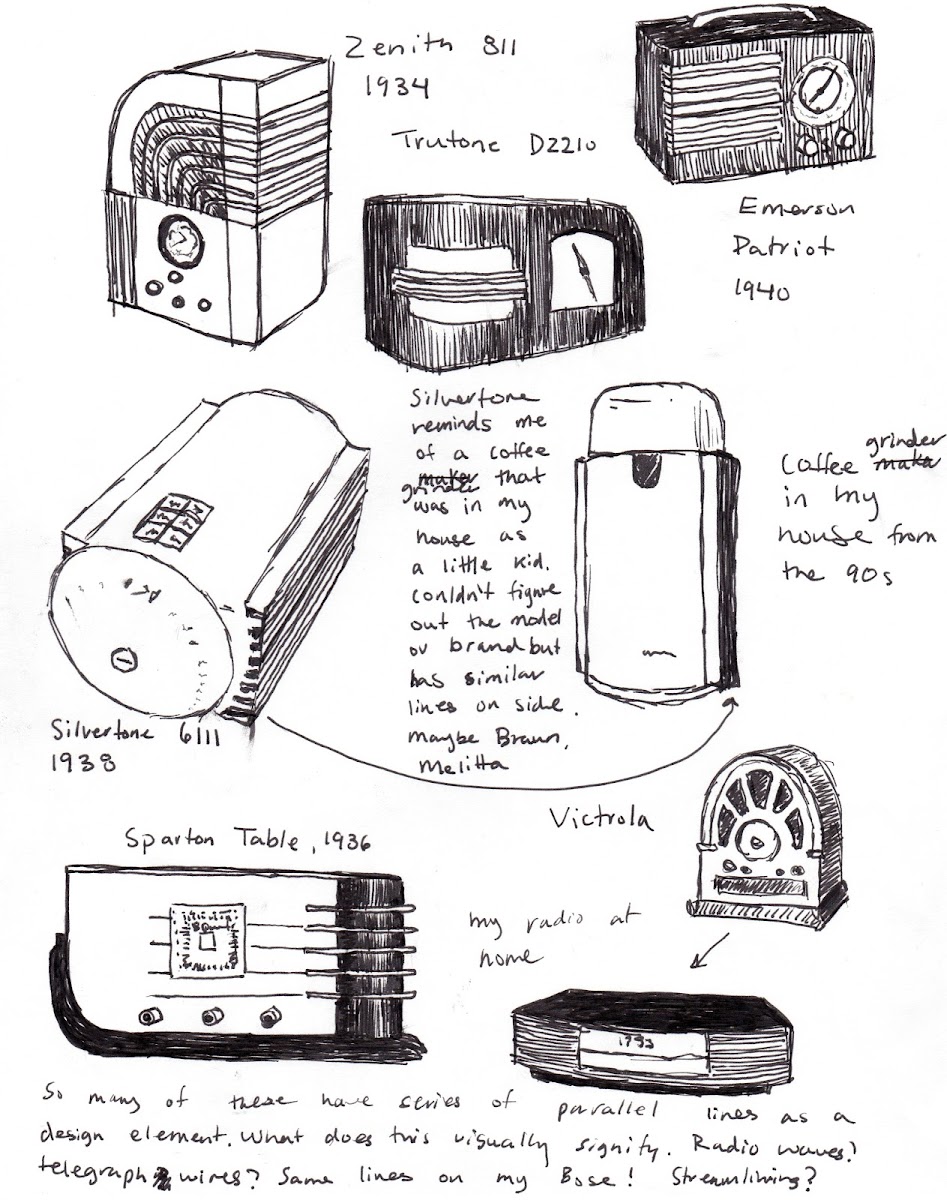 Zenith 811
1934
Trutone D2210
Emerson
Patriot
1940
Silvertone
reminds me
of a coffee
grinder that
was in my
house as
a little kid.
couldn't figure
out the model
or brand but
has similar
lines on side.
maybe Braun,
Melitta
Coffee grinder
in my
house from
the 90s
Silvertone 6111
1938
Victrola
Sparton Table, 1936
my radio at
home
So many of these have series of parallel lines as a
design element. What does this visually signify. Radio waves?
telegraph wires? Same lines on my Bose! Streamlining?